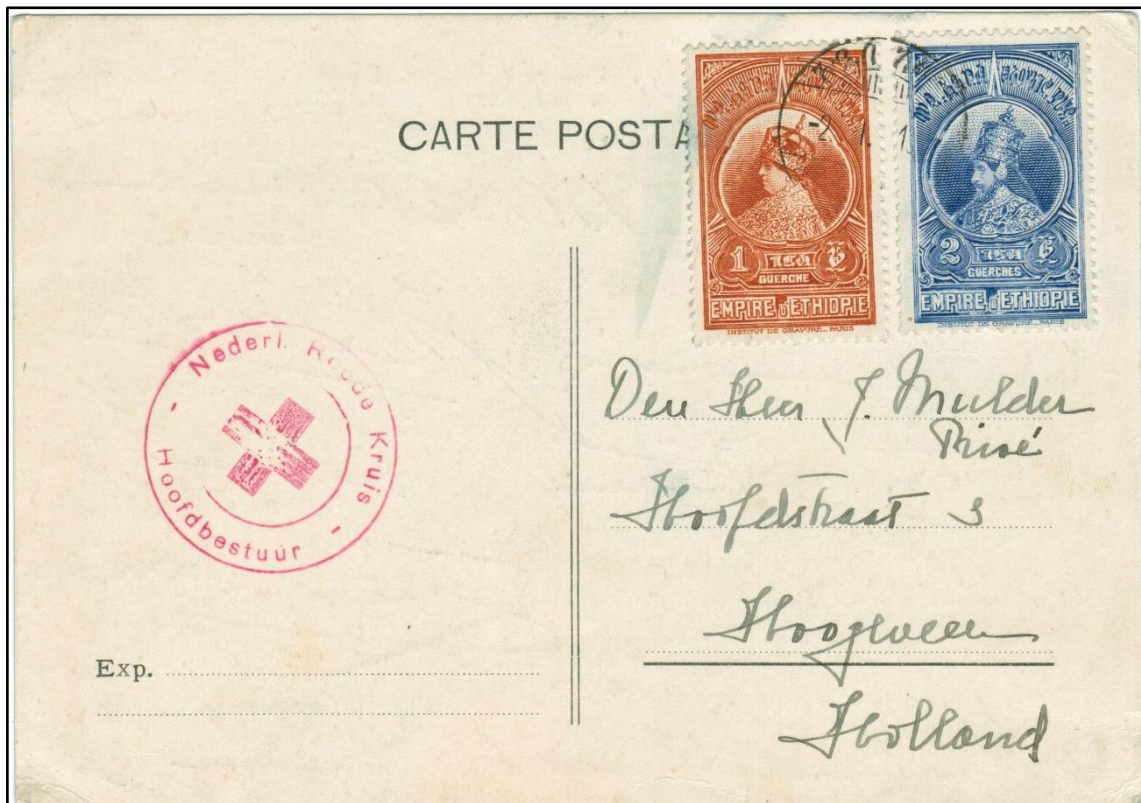 CARTE POSTA
1
GUERCHE
EMPIRE D'ETHIOPIE
INSTITUT DE GRAVURE_PARIS
2
GUERCHES
EMPIRE D'ETHIOPIE
INSTITUT DE GRAVURE_PARIS
- Nederl. Roode Kruis -
Hoofdbestuur
Den Heer J. Mulder
Privé
Hoofdstraat 3
Hoogeveen
Holland
Exp.